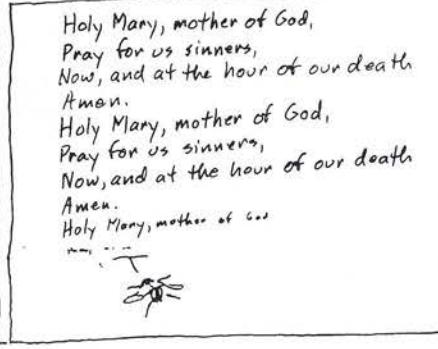 Holy Mary, mother of God,
Pray for us sinners,
Now, and at the hour of our death
Amen.
Holy Mary, mother of God,
Pray for us sinners,
Now, and at the hour of our death
Amen.
Holy Mary, mother of God